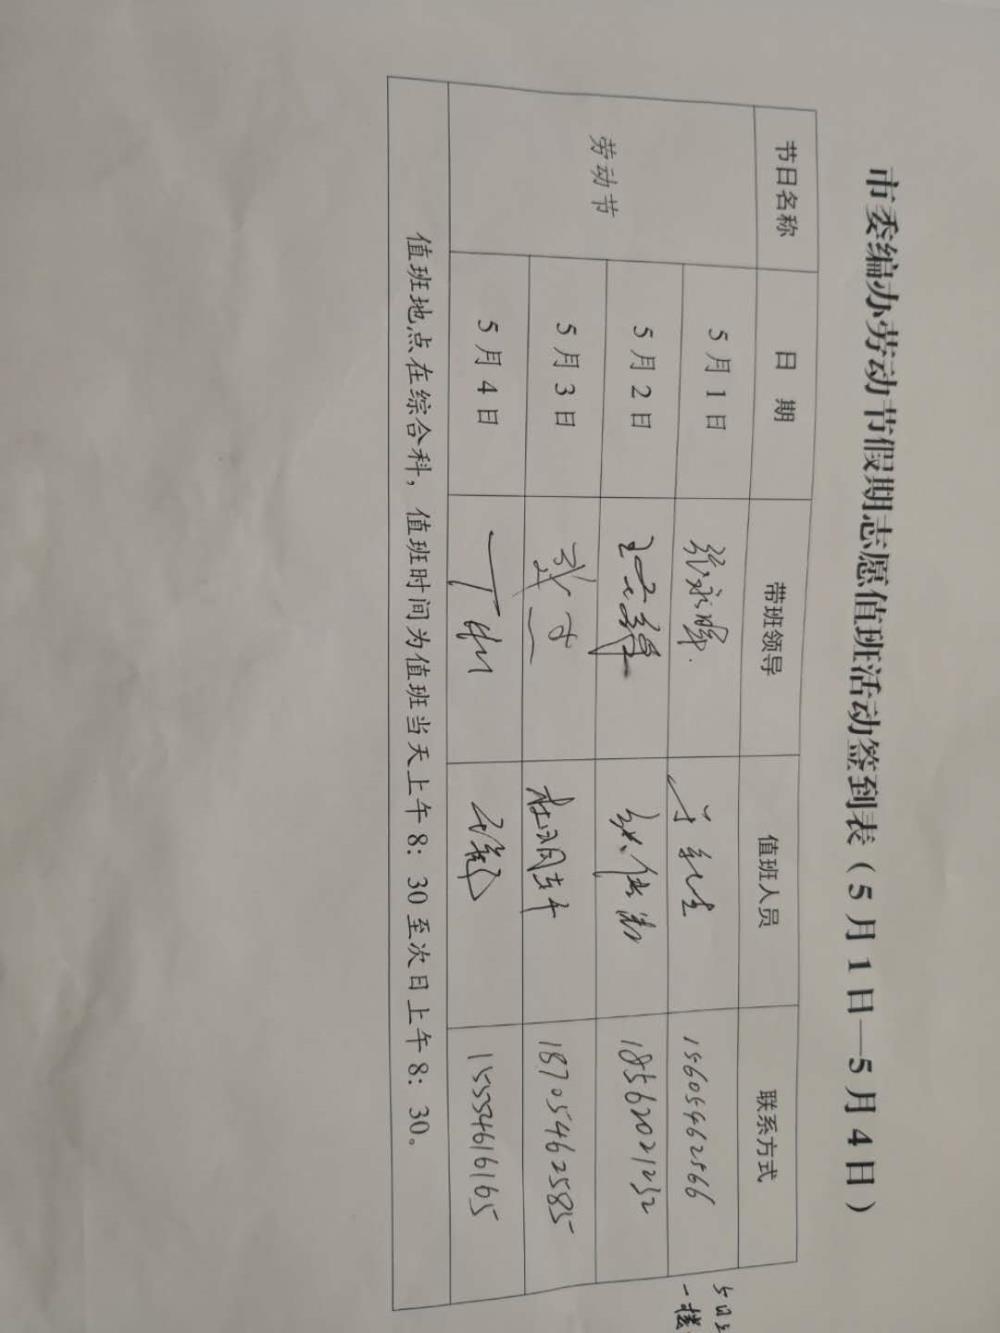 市委编办劳动节假期志愿值班活动签到表（5月1日—5月4日）
节日名称 日 期 带班领导 值班人员 联系方式
劳动节
5月1日 张永晖 15605462566
5月2日 18562021232
5月3日 18705462585
5月4日 15554616165
值班地点在综合科，值班时间为值班当天上午8：30至次日上午8：30。
一楼